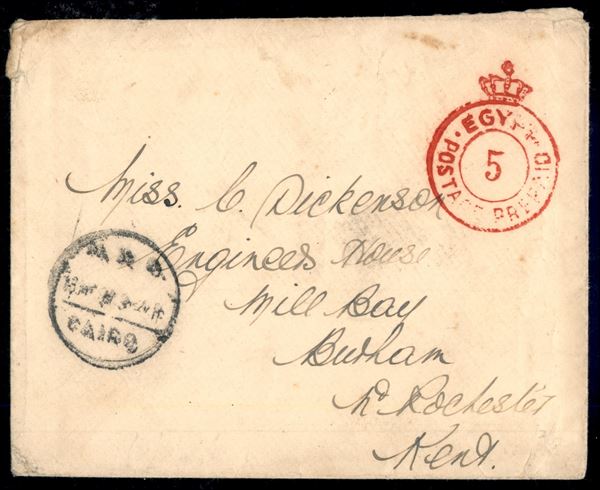 EGYPT
POSTAGE PREPAID
5
Miss. C. Dickenson
Engineers House
Mill Bay
Burham
Nr Rochester
Kent.
CAIRO